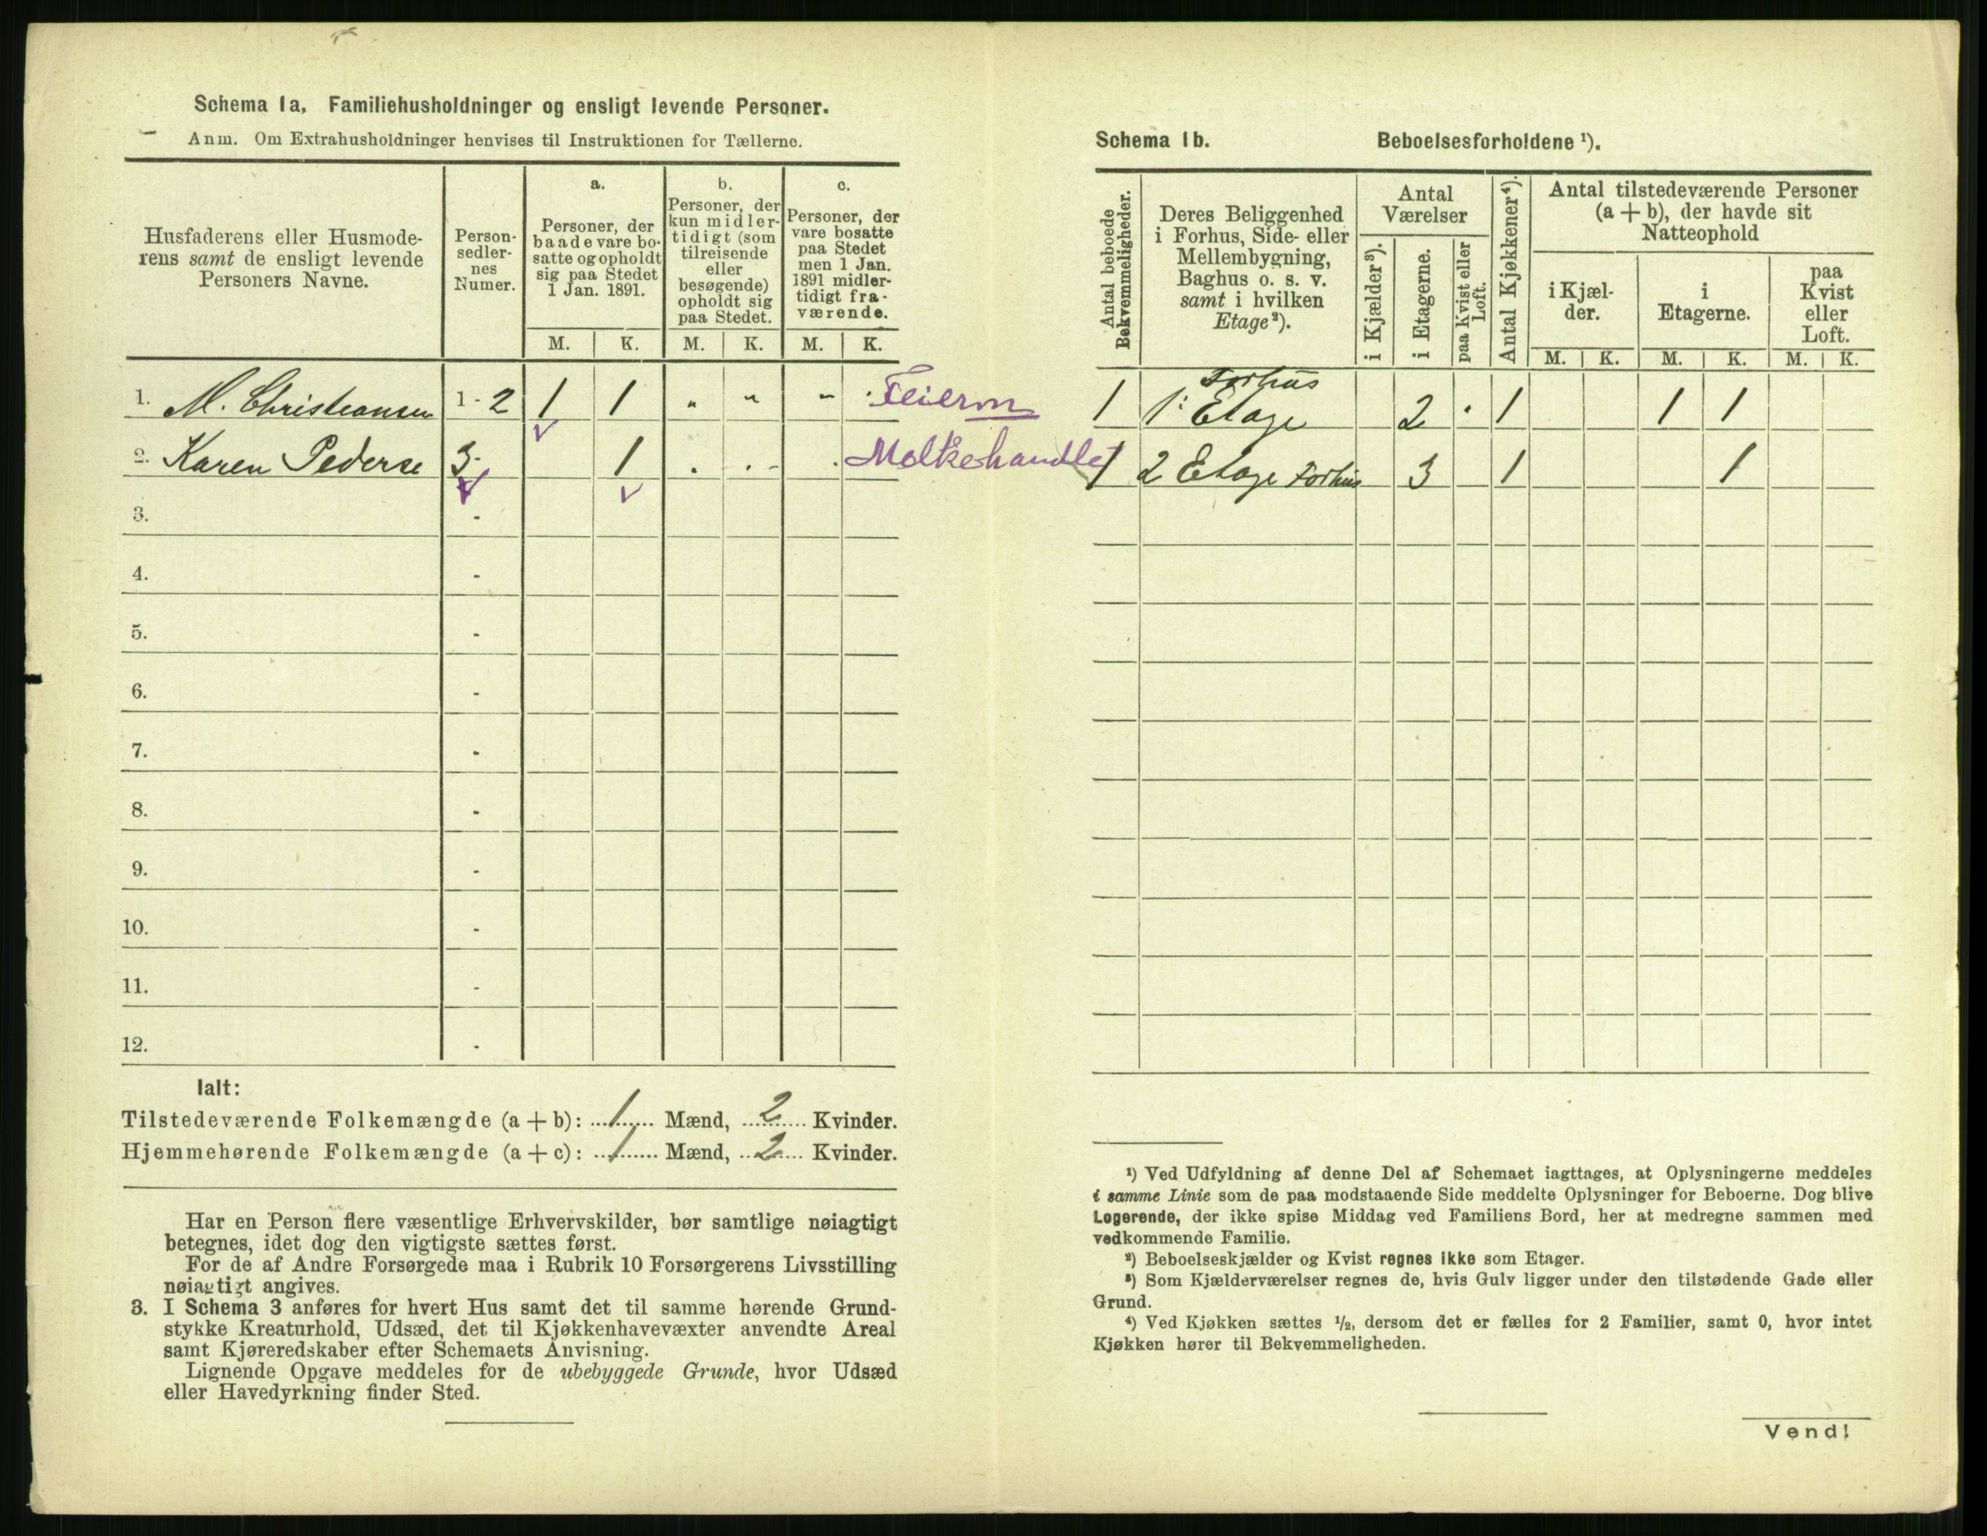 Schema 1a. Familiehusholdninger og ensligt levende Personer.
Anm. Om Extrahusholdninger henvises til Instruktionen for Tællerne.
Husfaderens eller Husmoderens samt de ensligt levende Personers Navne.
Personsedlernes Numer.
a.
Personer, der baade vare bosatte og opholdt sig paa Stedet 1 Jan. 1891.
b.
Personer, der kun midlertidigt (som tilreisende eller besøgende) opholdt sig paa Stedet.
c.
Personer, der vare bosatte paa Stedet men 1 Jan. 1891 midlertidigt fraværende.
M. K. M. K. M. K.
1. M. Christiansen 1 - 2 1 1 „ „ „ Feierm
2. Karen Pederse 3 - 1 Melkehandle
3. -
4. -
5. -
6. -
7. -
8. -
9. -
10. -
11. -
12. -
Ialt:
Tilstedeværende Folkemængde (a + b): 1 Mænd, 2 Kvinder.
Hjemmehørende Folkemængde (a + c): 1 Mænd, 2 Kvinder.
Har en Person flere væsentlige Erhvervskilder, bør samtlige nøiagtigt
betegnes, idet dog den vigtigste sættes først.
For de af Andre Forsørgede maa i Rubrik 10 Forsørgerens Livsstilling
nøiagtigt angives.
3. I Schema 3 anføres for hvert Hus samt det til samme hørende Grund-
stykke Kreaturhold, Udsæd, det til Kjøkkenhavevæxter anvendte Areal
samt Kjøreredskaber efter Schemaets Anvisning.
Lignende Opgave meddeles for de ubebyggede Grunde, hvor Udsæd
eller Havedyrkning finder Sted.
Schema 1b. Beboelsesforholdene ¹).
Antal beboede Bekvemmeligheder.
Deres Beliggenhed i Forhus, Side- eller Mellembygning, Baghus o. s. v. samt i hvilken Etage²).
Antal Værelser
i Kjælder³).
i Etagerne.
paa Kvist eller Loft.
Antal Kjøkkener⁴).
Antal tilstedeværende Personer (a + b), der havde sit Natteophold
i Kjælder.
i Etagerne.
paa Kvist eller Loft.
M. K. M. K. M. K.
1 1: Forhus Etage 2 . 1 1 1
1 2 Etage Forhus 3 1 1
¹) Ved Udfyldning af denne Del af Schemaet iagttages, at Oplysningerne meddeles
i samme Linie som de paa modstaaende Side meddelte Oplysninger for Beboerne. Dog blive
Logerende, der ikke spise Middag ved Familiens Bord, her at medregne sammen med
vedkommende Familie.
²) Beboelseskjælder og Kvist regnes ikke som Etager.
³) Som Kjælderværelser regnes de, hvis Gulv ligger under den tilstødende Gade eller
Grund.
⁴) Ved Kjøkken sættes ½, dersom det er fælles for 2 Familier, samt 0, hvor intet
Kjøkken hører til Bekvemmeligheden.
Vend!